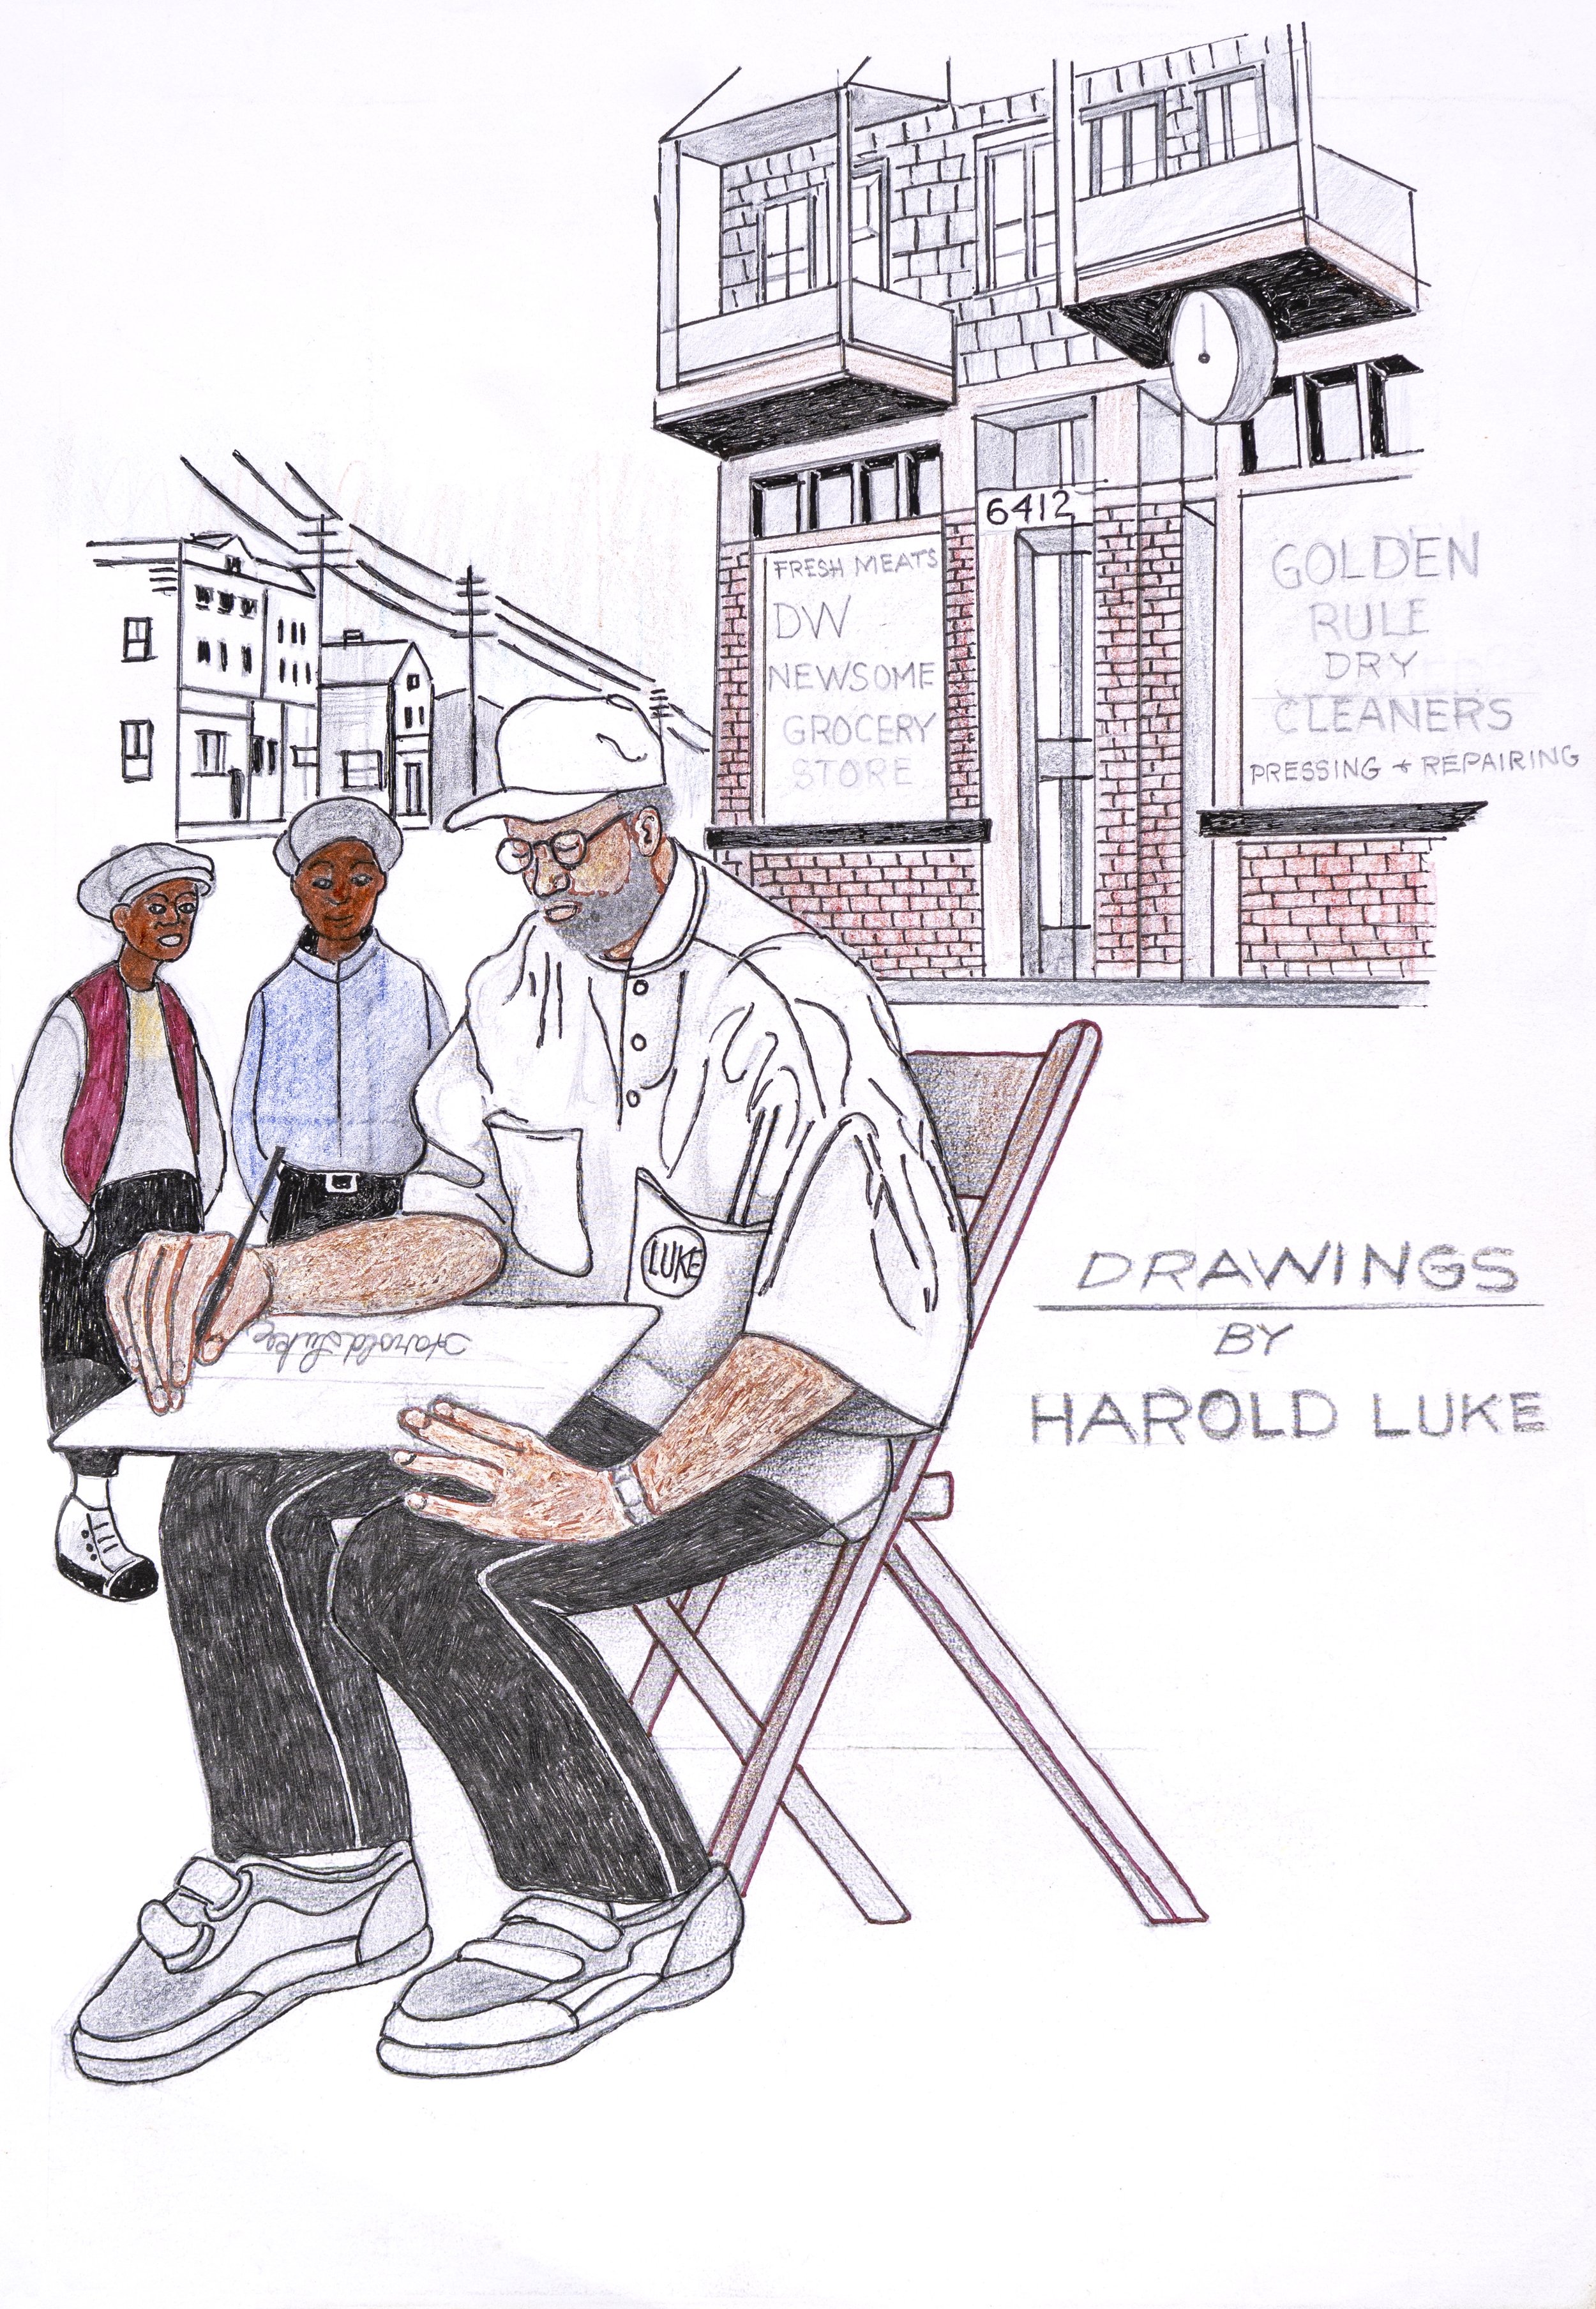 6412
FRESH MEATS
DW
NEWSOME
GROCERY
STORE
GOLDEN
RULE
DRY
CLEANERS
PRESSING + REPAIRING
LUKE
Harold Luke
DRAWINGS
BY
HAROLD LUKE